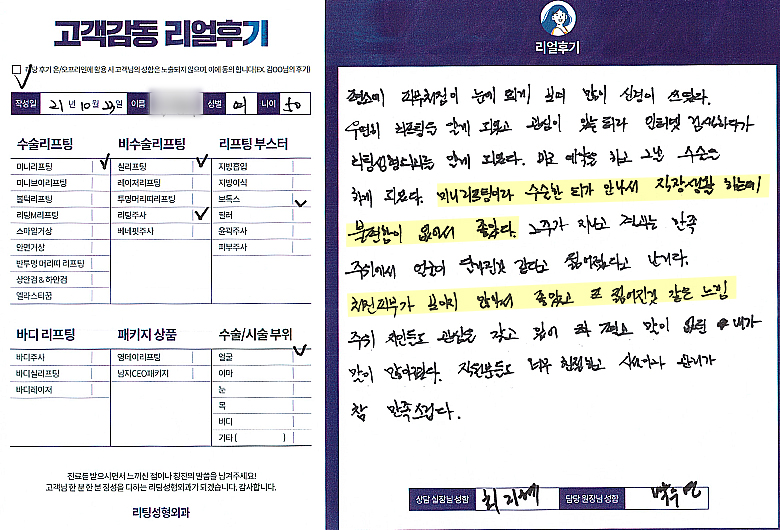 고객감동 리얼후기
해당 후기 온/오프라인에 활용 시 고객님의 성함은 노출되지 않으며, 이에 동의 합니다(EX. 김OO님의 후기)
작성일 21년 10월 22일 이름 성별 여 나이 50
수술리프팅
미니리프팅
미니브이리프팅
블럭리프팅
리딩M리프팅
스마일거상
안면거상
반투명 머리띠 리프팅
상안검 & 하안검
엘라스티꿈
비수술리프팅
실리프팅
레이저리프팅
투명머리띠리프팅
리팅주사
베네핏주사
리프팅 부스터
지방흡입
지방이식
보톡스
필러
윤곽주사
피부주사
바디 리프팅
바디주사
바디실리프팅
바디레이저
패키지 상품
영데이리프팅
남자CEO패키지
수술/시술 부위
얼굴
이마
눈
목
바디
기타 ( )
진료를 받으시면서 느끼신 점이나 칭찬의 말씀을 남겨주세요!
고객님 한 분 한 분 정성을 다하는 리팅성형외과가 되겠습니다. 감사합니다.
리팅성형외과
리얼후기
평소에 피부처짐이 눈에 띄게 보여 많이 신경이 쓰였다.
우연히 리프팅을 알게 되었고 관심이 있는터라 인터넷 검색하다가
리팅성형외과를 알게 되었다. 바로 예약을 하고 그날 수술을
하게 되었다. 미니리프팅이라 수술한 티가 안나서 직장생활 하는데
불편함이 없어서 좋았다. 2주가 지나고 결과는 만족
주위에서 인상이 달라진것 같다고 젊어졌다고 난리다.
처진피부가 보이지 않아서 좋았고 또 젊어진것 같은 느낌
주위 지인들도 관심을 갖고 있어 참 평소 말이 없던 내가
말이 많아졌다. 직원분들도 너무 친절하고 사후관리가
참 만족스럽다.
상담 실장님 성함 담당 원장님 성함